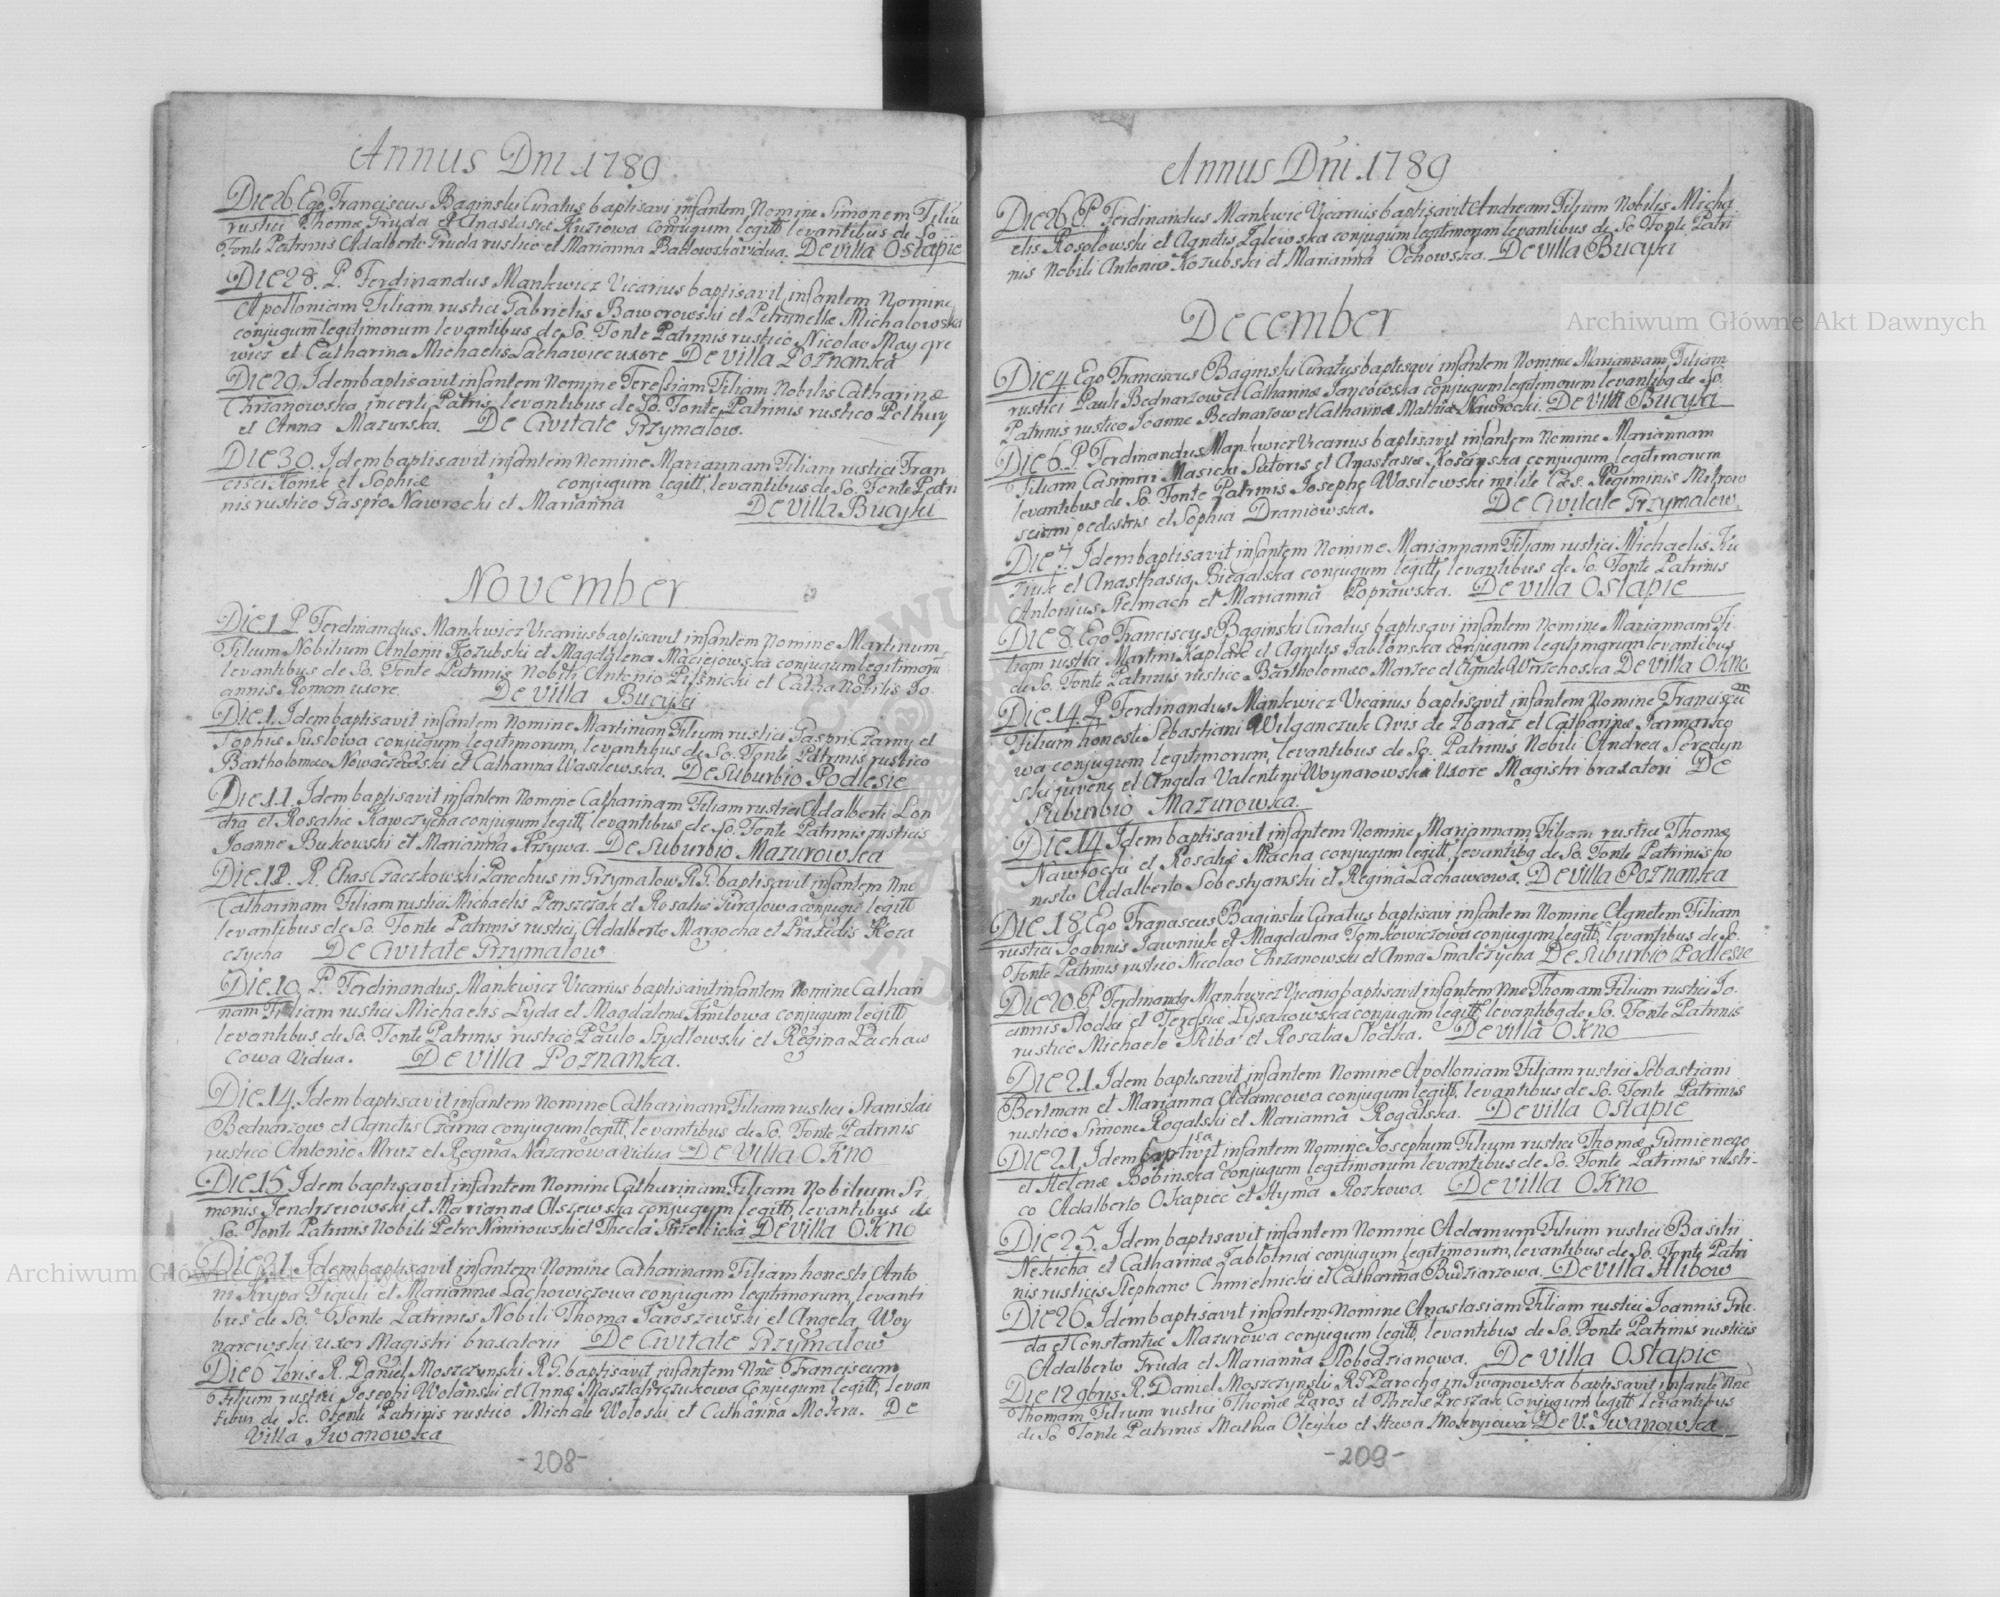 Annus Dni 1789
Die 26. Ego Franciscus Baginski Curatus baptisavi infantem Nomine Simonem Filiu
rustici Thomæ Gruda et Anastasiæ Kuziowa Conjugum legitt levantibus de So
Fonte Patrinis Adalberto Gruda rustico et Marianna Bartowska vidua. De villa Ostapie
Die 28. P. Ferdinandus Mankwicz Vicarius baptisavit infantem Nomine
Apolloniam Filiam rustici Gabrielis Baworowski et Petrunellæ Michalowska
conjugum legitimorum levantibus de So. Fonte Patrinis rustico Nicolao May gre
wicz et Catharina Michaelis Lachawiec uxore De villa Poznanka
Die 29. Idem baptisavit infantem Nomine Teressiam Filiam Nobilis Catharinæ
Chrzanowska incerti Patris, levantibus de So. Fonte Patrinis rustico Pelhuy
et Anna Mazurska. De Civitate Grzymalow.
Die 30. Idem baptisavit infantem Nomine Mariannam Filiam rustici Fran
cisci Homik et Sophiæ conjugum legitt, levantibus de So. Fonte Patri
nis rustico Gaspro Nawrocki et Marianna De villa Bucyki
November
Die 1. P. Ferdinandus Mankwicz Vicarius baptisavit infantem Nomine Martinum
Filium Nobilium Antonii Kozubski et Magdalena Maciejowska conjugum legitimoru
levantibus de So. Fonte Patrinis Nobili Antonio Pusnicki et Catha Nobilis Jo.
annis Roman uxore. De villa Bucyki
Die 1. Idem baptisavit infantem Nomine Martinum Filium rustici Gaspri Czarny et
Sophiæ Suslowa conjugum legitimorum, levantibus de So. Fonte Patrinis rustico
Bartholomæo Nowaczewski et Catharina Wasilewska. De Suburbio Podlesie
Die 11. Idem baptisavit infantem Nomine Catharinam Filiam rustici Adalberti Lon
dra et Rosaliæ Kawczycha conjugum legitt, levantibus de So. Fonte Patrinis rusticis
Joanne Bukowski et Marianna Krzywa. De Suburbio Mazurowka
Die 12. R. Elias Czaczkowski Parochus in Grzymalow R. G. baptisavit infantem Nne
Catharinam Filiam rustici Michaelis Parszczak et Rosaliæ Guralowa conjugu legitt
levantibus de So. Fonte Patrinis rustici, Adalberto Margocha et Praxedis Koza
czycha De Civitate Grzymalow
Die 10. P. Ferdinandus Mankwicz Vicarius baptisavit infantem Nomine Cathari
nam Filiam rustici Michaelis Lyda et Magdalenæ Kmitowa conjugum legitt
levantibus de So. Fonte Patrinis rustico Paulo Szydlowski et Regina Lachaw
cowa Vidua. De villa Poznanka.
Die 14. Idem baptisavit infantem Nomine Catharinam Filiam rustici Stanislai
Bednarzow et Agnetis Czarna conjugum legitt, levantibus de So. Fonte Patrinis
rustico Antonio Mroz et Regina Nazarowa vidua De Villa Okno
Die 15. Idem baptisavit infantem Nomine Catharinam Filiam Nobilium Si
monis Jendrzeiowski et Mariannæ Olszewska conjugum legitt, levantibus de
So. Fonte Patrinis Nobili Petro Nimirowski et Thecla Trzelticka De villa Okno
Die 21. Idem baptisavit infantem Nomine Catharinam Filiam honesti Anto
ni Krypa Figuli et Mariannæ Lachowiczowa conjugum legitimorum, levanti
bus de So. Fonte Patrinis Nobili Thoma Jaroszewski et Angela Woy
narowski uxor Magistri braxatorii De Civitate Grzymalow
Die 6 7bris R. Daniel Moszczynski R. G. baptisavit infantem Nne Franciscum
Filium rustici Josephi Wolanski et Annæ Masztaferczukowa Conjugum legitt, levan
tibus de So. Fonte Patrinis rustico Michale Woloski et Catharina Mokra. De
Villa Iwanowka
-208-
Annus Dni 1789
Die 26. P. Ferdinandus Mankwic Vicarius baptisavit Andream Filium Nobilis Micha
elis Rosolowski et Agnetis Zalewska conjugum legitimorum levantibus de So. Fonte Patri
nis Nobili Antonio Kozubski et Marianna Ochowska. De villa Bucyki
December
Die 4. Ego Franciscus Baginski Curatus baptisavi infantem Nomine Mariannam, Filiam
rustici Pauli Bednarzow et Catharinæ Jaycowska conjugum legitimorum levantibq de So.
Patrinis rustico Joanne Bednarzow et Catharinæ Mathiæ Nawrocki. De Villa Bucyki
Die 6. P. Ferdinandus Mankwicz Vicarius baptisavit infantem Nomine Mariannam
Filiam Casimiri Masicki Sutoris et Anastasiæ Kosinska conjugum legitimorum
levantibus de So. Fonte Patrinis Josepho Wasilewski milite Cæs. Regiminis Mitrow
sciani pedestris et Sophia Draniowska. De Civitate Grzymalow.
Die 7. Idem baptisavit infantem Nomine Mariannam Filiam rustici Michaelis Ku
ziuk et Anasthasia Biegalska conjugum legitt, levantibus de So. Fonte Patrinis
Antonius Stelmach et Marianna Poprawska. De villa Ostapie
Die 8. Ego Franciscus Baginski Curatus baptisavi infantem Nomine Mariannam Fi
liam rustici Martini Kaplak et Agnetis Jablonska Conjugum legitimorum levantibus
de So. Fonte Patrinis rustico Bartholomæo Marzec et Agnete Wirzchoska De Villa Okno
Die 14. P. Ferdinandus Mankwicz Vicarius baptisavit infantem Nomine Franciscum
Filium honesti Sebastiani Wilganczuk Civis de Zbaraz et Catharinæ Jarmarko
wa conjugum legitimorum, levantibus de So. Patrinis Nobili Andrea Seredyn
ski juvene et Angela Valentini Woynarowski Uxore Magistri braxatori De
Suburbio Mazurowka.
Die 14. Idem baptisavit infantem Nomine Mariannam Filiam rustici Thomæ
Nawrocki et Rosaliæ Macha conjugum legitt, levantibq de So. Fonte Patrinis ho
nesto Adalberto Sobestyanski et Regina Lachawcowa. De villa Poznanka
Die 18. Ego Franciscus Baginski Curatus baptisavi infantem Nomine Agnetem Filiam
rustici Joannis Jawniuk et Magdalena Tomkowiczowa conjugum legitt, levantibus de So.
Fonte Patrinis rustico Nicolao Chrzanowski et Anna Smalczycha De Suburbio Podlesie
Die 20. P. Ferdinandq Mankwicz Vicariq baptisavit infantem Nne Thomam Filium rustici Jo.
annis Slodki et Teressiæ Lysakowska conjugum legitt levantibq de So. Fonte Patrinis
rustico Michaele Skiba et Rosalia Slodka. De villa Okno
Die 21. Idem baptisavit infantem Nomine Apolloniam Filiam rustici Sebastiani
Bertman et Marianna Adamcowa conjugum legitt, levantibus de So. Fonte Patrinis
rustico Simone Rogalski et Marianna Rogalska. De villa Ostapie
Die 21. Idem baptisavit infantem Nomine Josephum Filium rustici Thomæ Gumienego
et Helenæ Bobinska conjugum legitimorum levantibus de So. Fonte Patrinis rusti-
co Adalberto Okapiec et Hyma Rozkowa. De villa Okno
Die 25. Idem baptisavit infantem Nomine Adamum Filium rustici Basilii
Nekicha et Catharinæ Zablotnia conjugum legitimorum, levantibus de So. Fonte Patri
nis rusticis Stephano Chmielnicki et Catharina Budziarzowa. De villa Hlibow
Die 26. Idem baptisavit infantem Nomine Anastasiam Filiam rustici Joannis Gru
da et Constantiæ Mazurowa conjugum legitt, levantibus de So. Fonte Patrinis rusticis
Adalberto Gruda et Marianna Slobodzianowa. De Villa Ostapie
Die 12 9bris R. Daniel Moszczynski R G Parochq in Iwanowka baptisavit infante Nne
Thomam Filium rustici Thomæ Paros et Theclæ Proszak Conjugum legitt levantibus
de So Fonte Patrinis Mathia Oleyko et Hewa Mokryiowa De V. Iwanowka
-209-
Archiwum Główne Akt Dawnych
Archiwum Główne Akt Dawnych